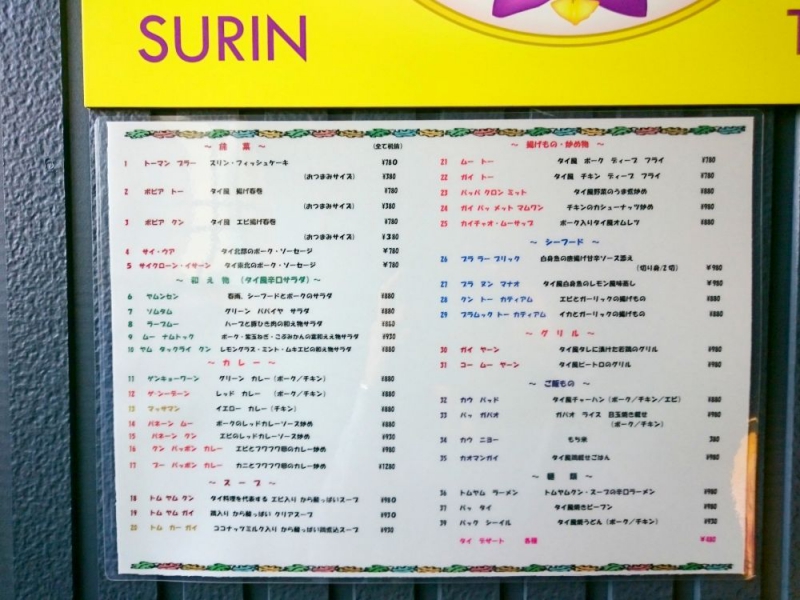 SURIN
T
～ 前 菜 ～ (全て税抜)
1 トーマン プラー スリン・フィッシュケーキ ¥780
(おつまみサイズ) ¥380
2 ポピア トー タイ風 揚げ春巻 ¥780
(おつまみサイズ) ¥380
3 ポピア クン タイ風 エビ揚げ春巻 ¥780
(おつまみサイズ) ¥380
4 サイ・ウア タイ北部のポーク・ソーセージ ¥780
5 サイクローン・イサーン タイ東北のポーク・ソーセージ ¥780
～ 和え物 (タイ風辛口サラダ) ～
6 ヤムンセン 春雨、シーフードとポークのサラダ ¥880
7 ソムタム グリーン パパイヤ サラダ ¥880
8 ラープムー ハーブと豚ひき肉の和え物サラダ ¥860
9 ムー ナムトック ポーク・紫玉ねぎ・こぶみかんの葉和え物サラダ ¥930
10 ヤム タックライ クン レモングラス・ミント・ムキエビの和え物サラダ ¥880
～ カレー ～
11 ゲンキョーワーン グリーン カレー (ポーク/チキン) ¥880
12 ゲーンデーン レッド カレー (ポーク/チキン) ¥880
13 マッサマン イエロー カレー (チキン) ¥880
14 パネーン ムー ポークのレッドカレーソース炒め ¥880
15 パネーン クン エビのレッドカレーソース炒め ¥930
16 クン パッポン カレー エビとフワフワ卵のカレー炒め ¥980
17 プー パッポン カレー カニとフワフワ卵のカレー炒め ¥1280
～ スープ ～
18 トム ヤム クン タイ料理を代表する エビ入り から酸っぱいスープ ¥980
19 トム ヤム ガイ 鶏入り から酸っぱい クリアスープ ¥930
20 トム カー ガイ ココナッツミルク入り から酸っぱい鶏煮込スープ ¥930
～ 揚げもの・炒め物 ～
21 ムー トー タイ風 ポーク ディープ フライ ¥780
22 ガイ トー タイ風 チキン ディープ フライ ¥780
23 パッパ クロン ミット タイ風野菜のうま煮炒め ¥880
24 ガイ パッ メット マムワン チキンのカシューナッツ炒め ¥980
25 カイチャオ・ムーサップ ポーク入りタイ風オムレツ ¥880
～ シーフード ～
26 プラ ラー プリック 白身魚の唐揚げ甘辛ソース添え
(切り身/2切) ¥980
27 プラ ヌン マナオ タイ風白身魚のレモン風味蒸し ¥980
28 クン トー カティアム エビとガーリックの揚げもの ¥880
29 プラムック トー カティアム イカとガーリックの揚げもの ¥880
～ グ リ ル ～
30 ガイ ヤーン タイ風タレに漬けた若鶏のグリル ¥980
31 コー ムー ヤーン タイ風ピートロのグリル ¥980
～ ご飯もの ～
32 カウ パッド タイ風チャーハン (ポーク/チキン/エビ) ¥880
33 パッ ガパオ ガパオ ライス 目玉焼き載せ ¥980
(ポーク/チキン)
34 カウ ニヨー もち米 380
35 カオマンガイ タイ風鶏載せごはん ¥980
～ 麺 類 ～
36 トムヤム ラーメン トムヤムクン・スープの辛口ラーメン ¥980
37 パッ タイ タイ風焼きビーフン ¥980
39 パック シーイル タイ風焼うどん (ポーク/チキン) ¥930
タイ デザート 各種 ¥480